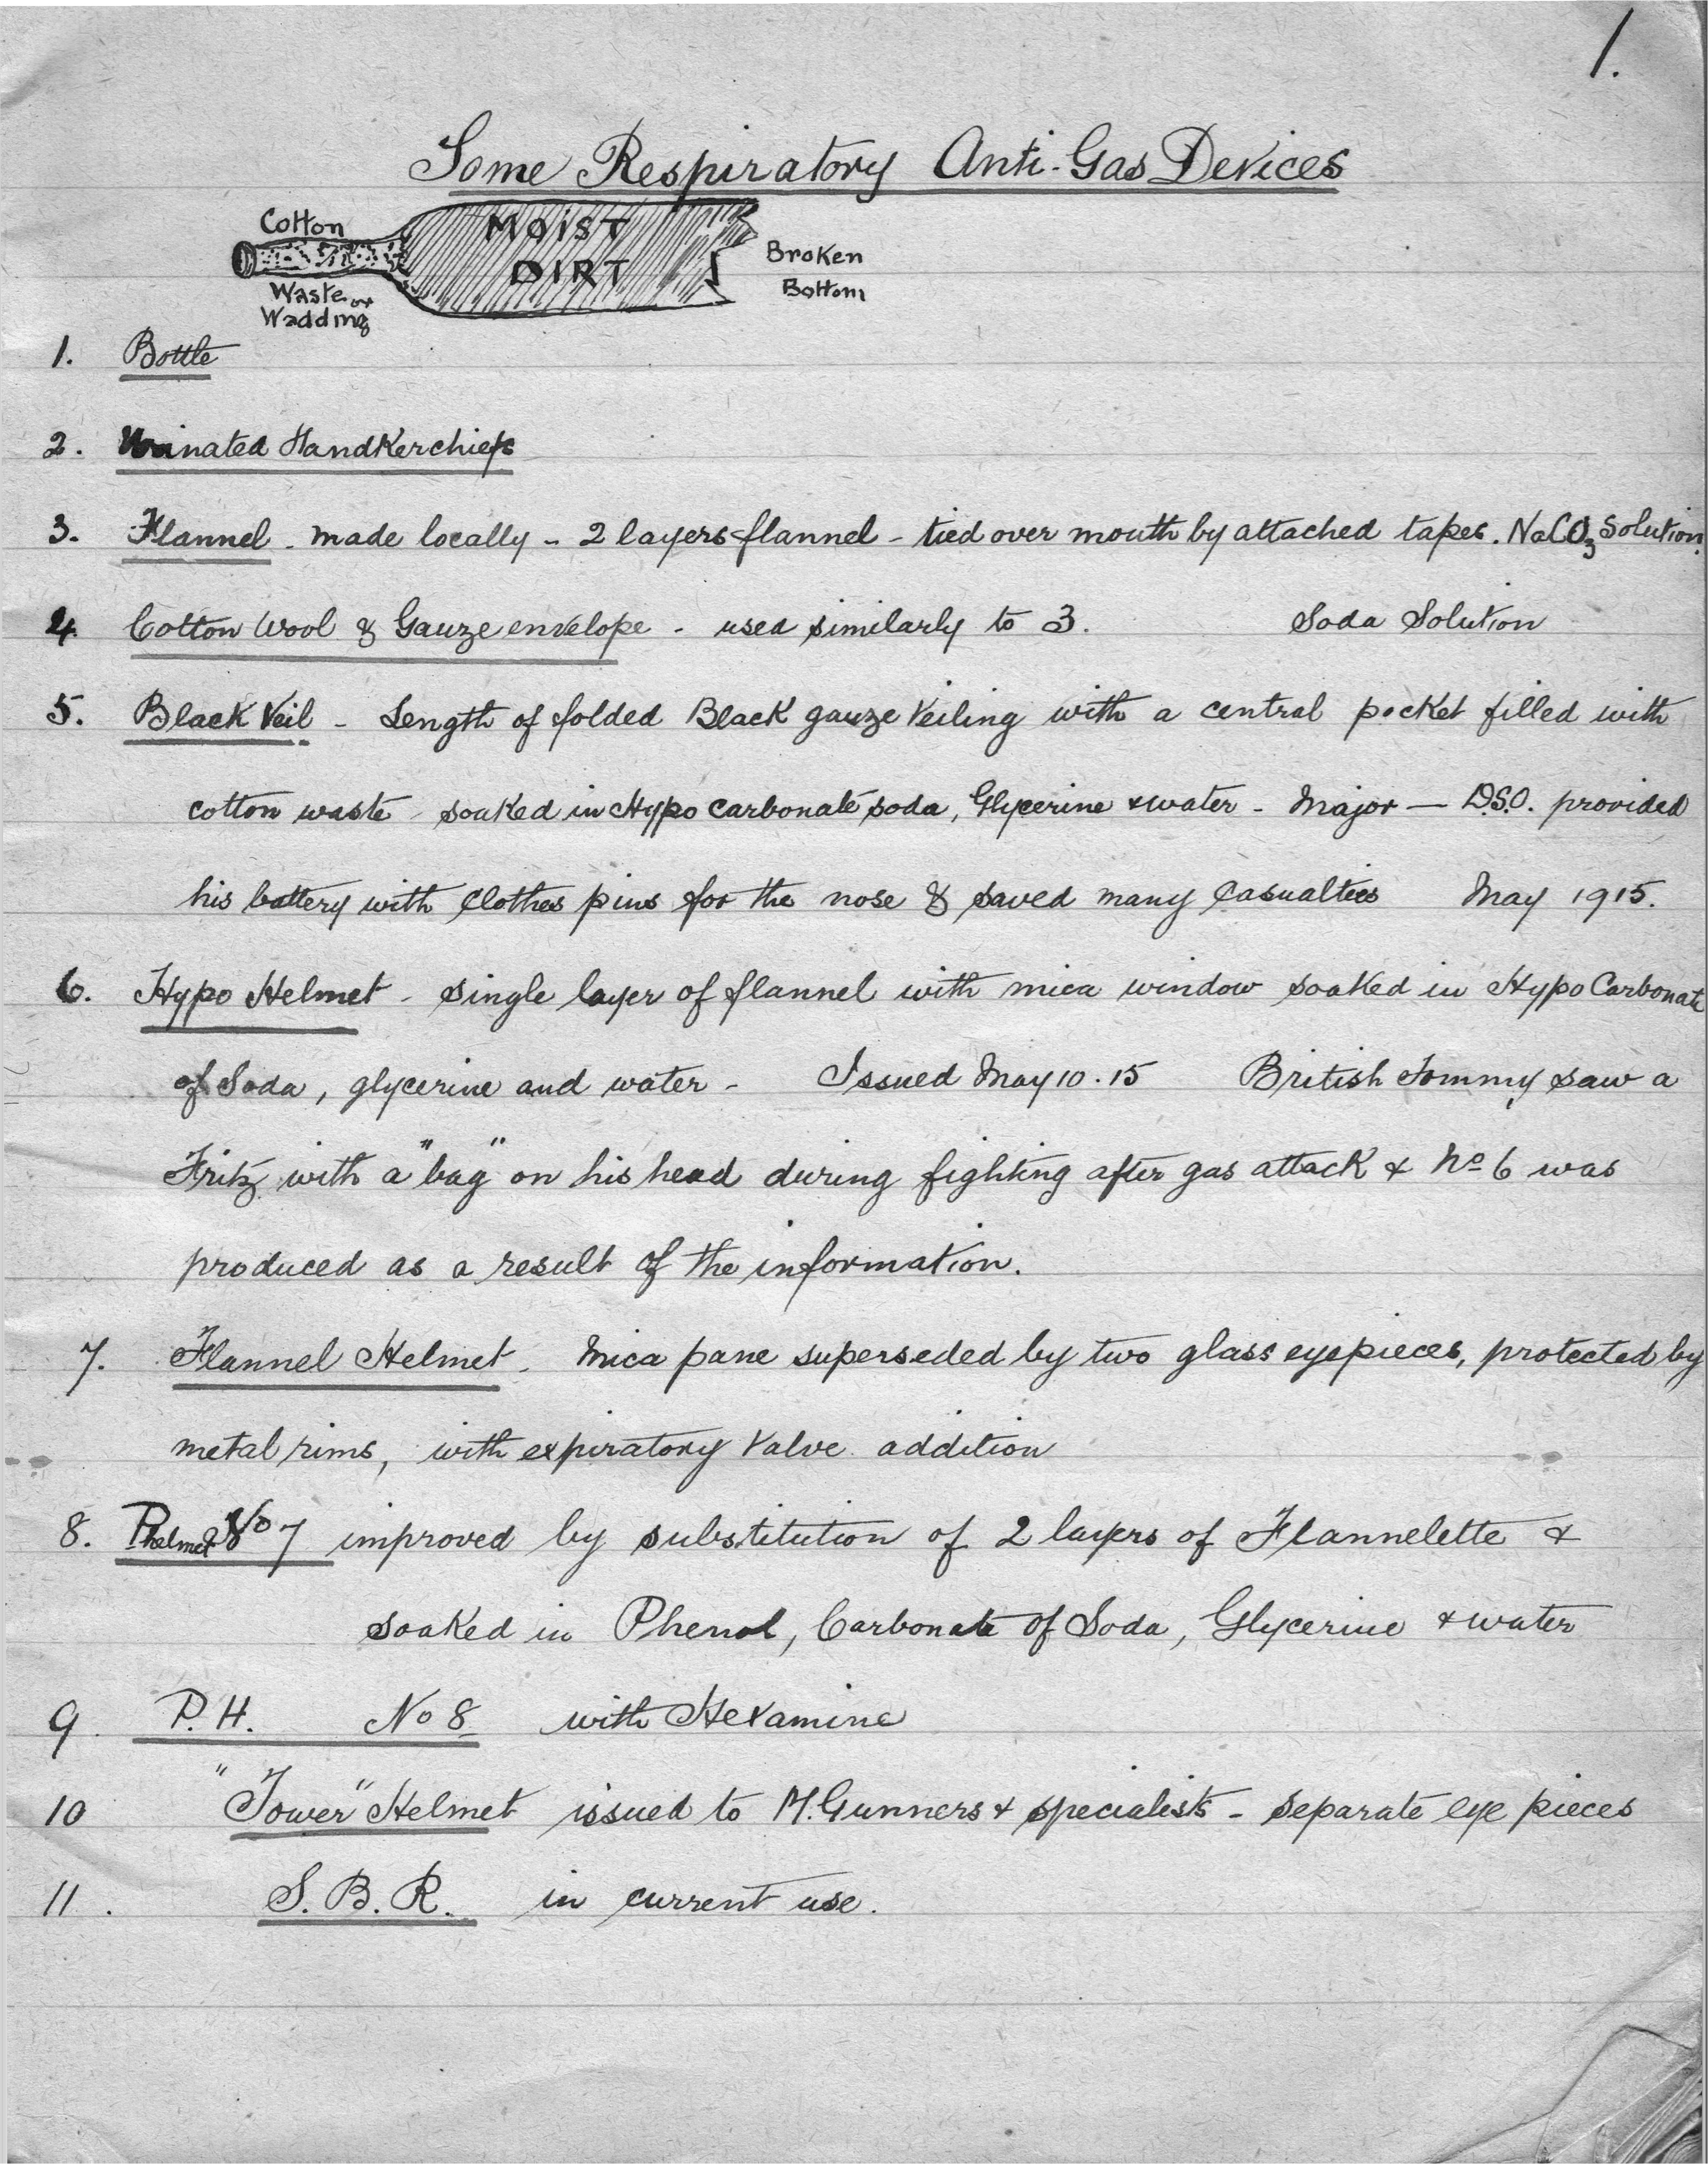 1.
Some Respiratory Anti-Gas Devices
Cotton
Waste or
Wadding
MOIST
DIRT
Broken
Bottom
1. Bottle
2. Urinated Handkerchiefs
3. Flannel - made locally - 2 layers flannel - tied over mouth by attached tapes. NaCO3 Solution.
4. Cotton Wool & Gauze envelope - used similarly to 3. Soda Solution
5. Black Veil - Length of folded Black gauze Veiling with a central pocket filled with
cotton waste - soaked in Hypo carbonate soda, Glycerine & water - Major — D.S.O. provided
his battery with Clothes pins for the nose & saved many Casualties May 1915.
6. Hypo Helmet - single layer of flannel with mica window soaked in Hypo Carbonate
of Soda, glycerine and water - Issued May 10.15 British Tommy saw a
Fritz with a "bag" on his head during fighting after gas attack & No 6 was
produced as a result of the information.
7. Flannel Helmet. Mica pane superseded by two glass eyepieces, protected by
metal rims, with expiratory Valve addition
8. P helmet No 7 improved by substitution of 2 layers of Flannelette &
soaked in Phenol, Carbonate of Soda, Glycerine & water
9. P.H. No 8 with Hexamine
10 "Tower" Helmet issued to M.Gunners & specialists - separate eye pieces
11. S.B.R. in current use.